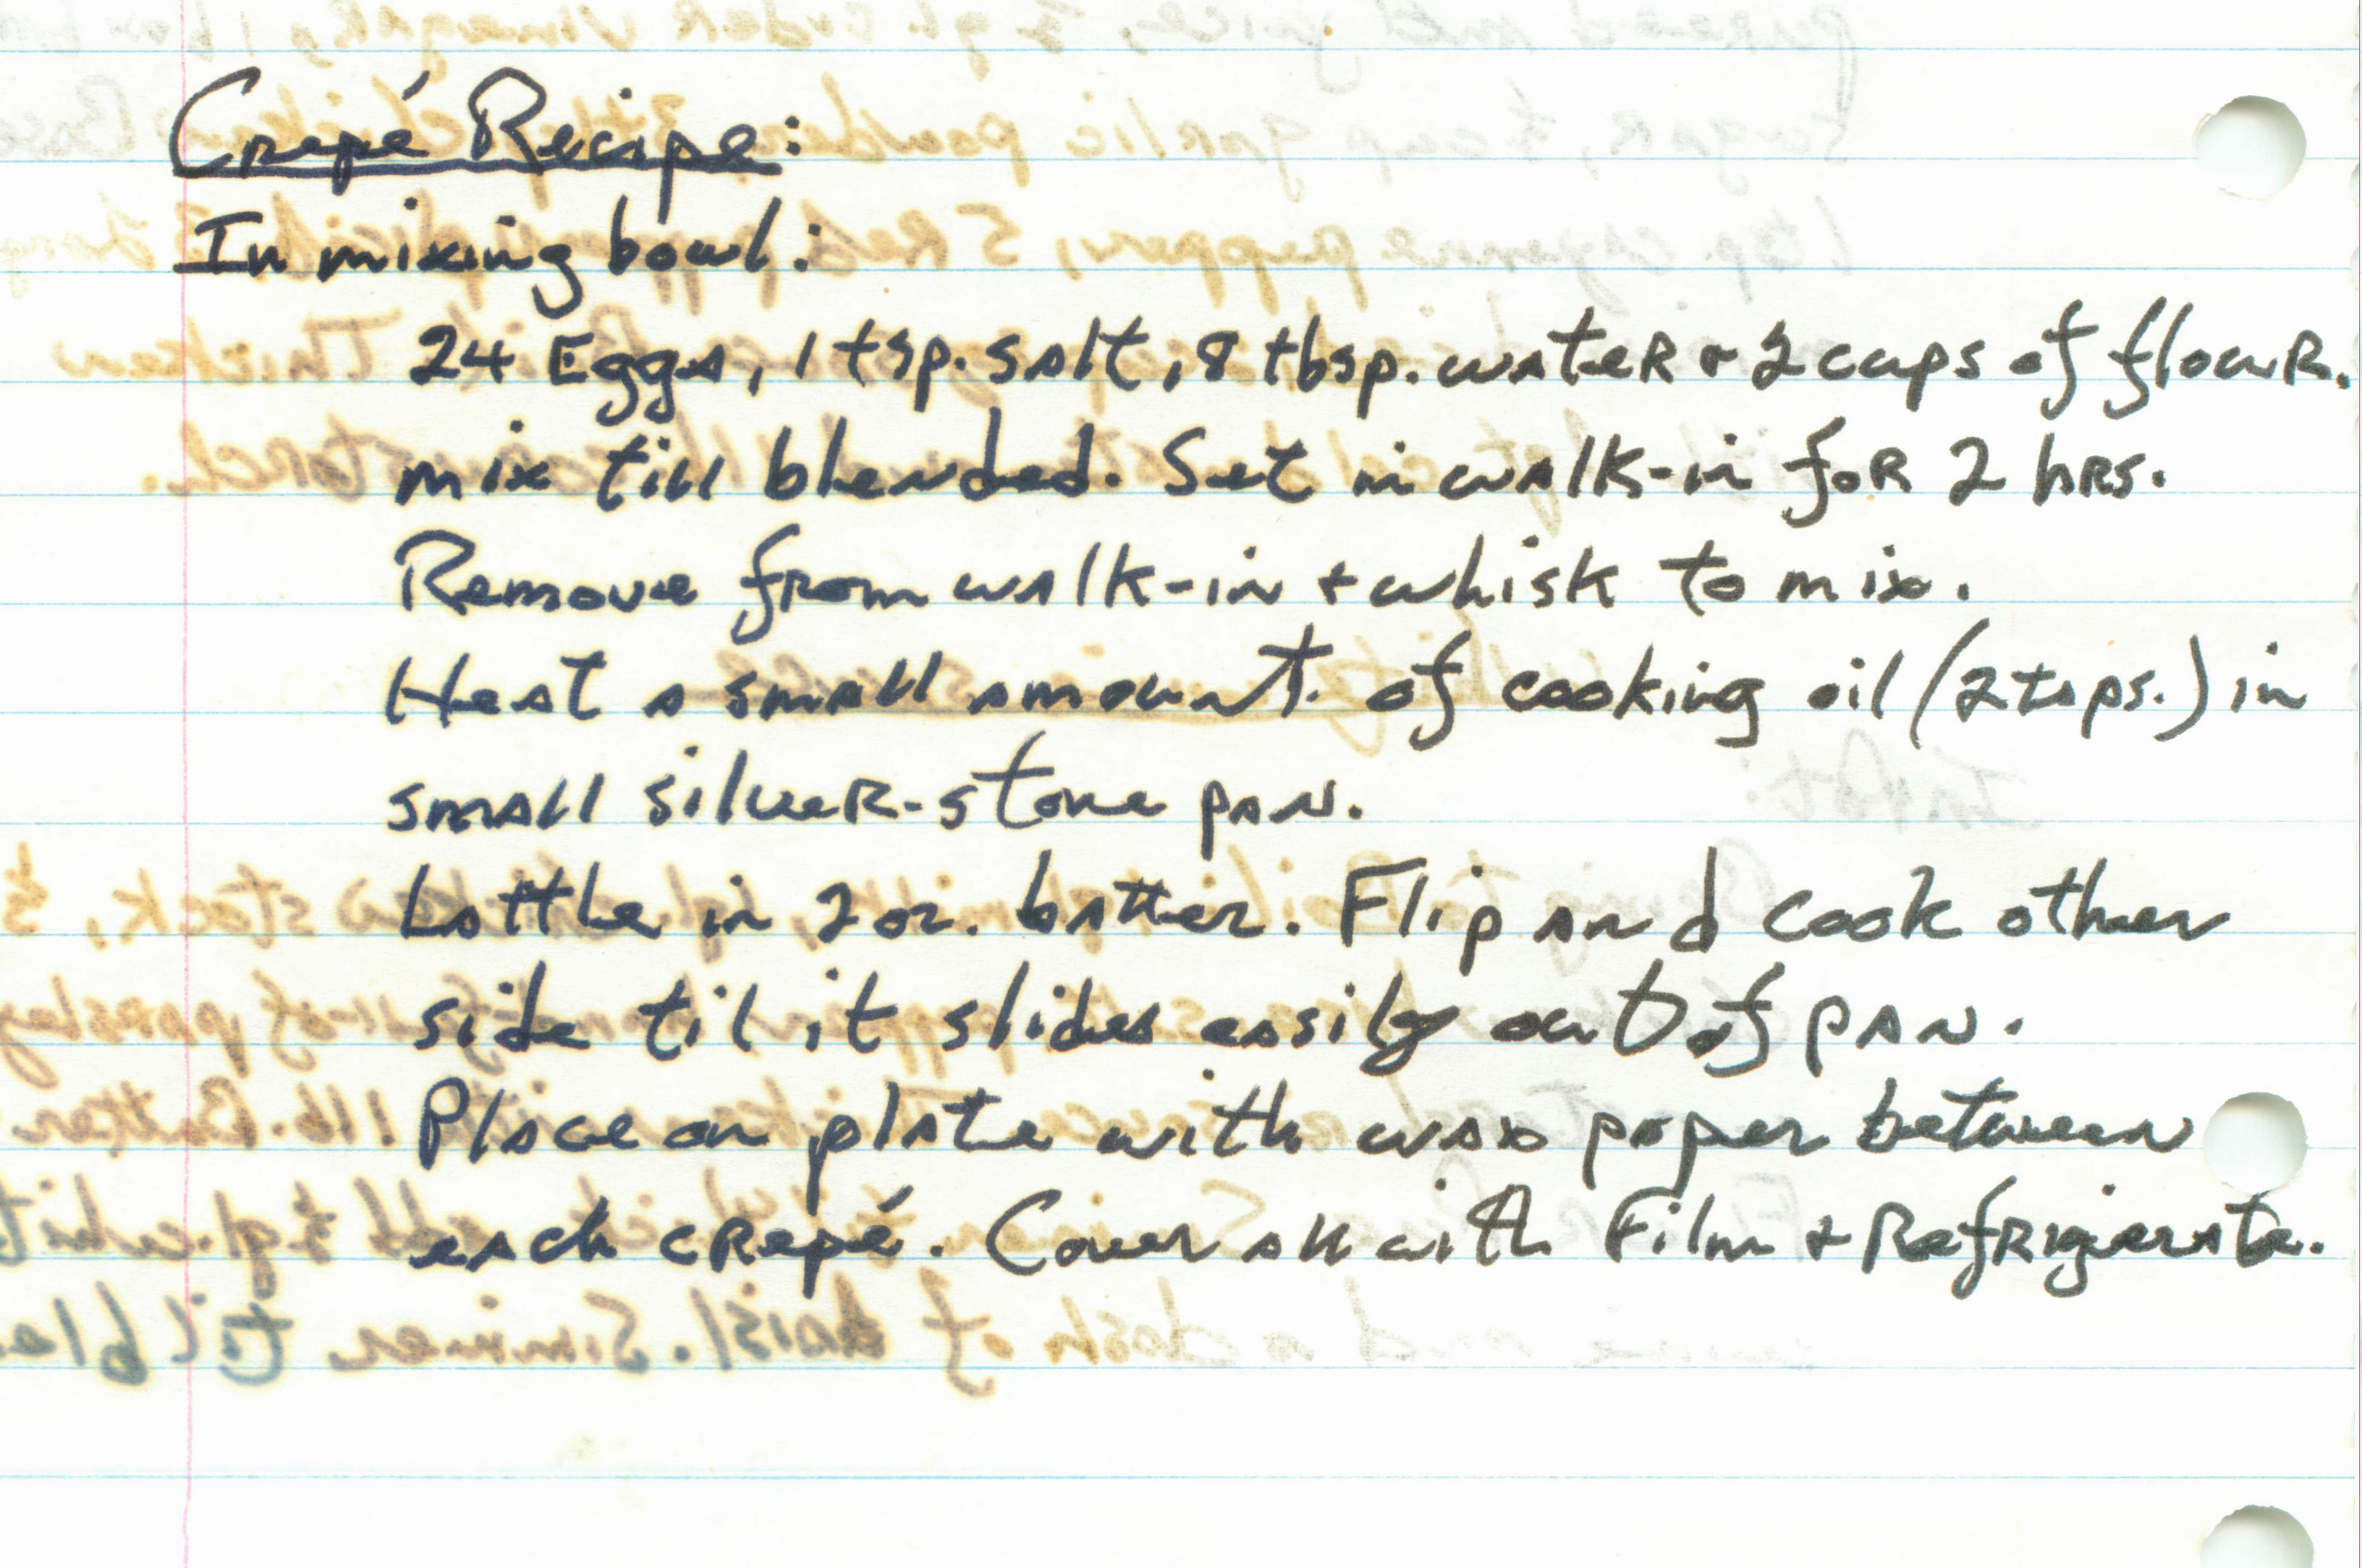 Crepé Recipe:
In mixing bowl:
24 Eggs, 1 tsp. salt, 8 tbsp. water + 2 cups of flour.
mix till blended. Set in walk-in for 2 hrs.
Remove from walk-in + whisk to mix.
Heat a small amount of cooking oil (2 tsps.) in
small silver-stone pan.
Lattle in 2 oz. batter. Flip and cook other
side til it slides easily out of pan.
Place on plate with wax paper between
each crepé. Cover all with Film + Refrigerate.